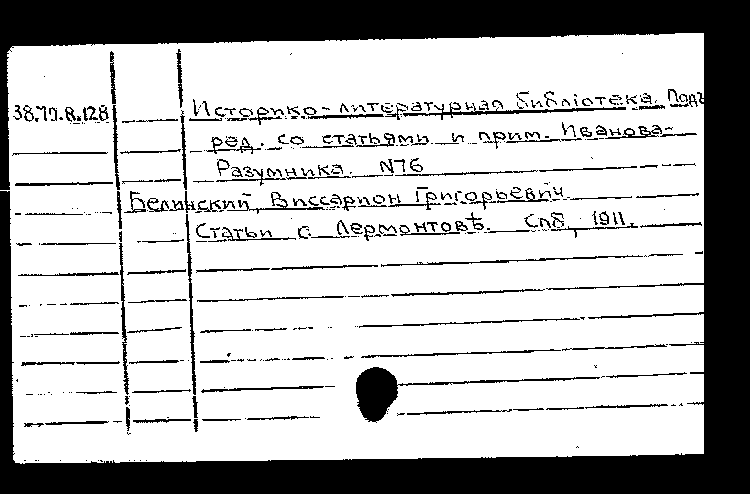 38.77.8.128 Историко-литературная библіотека. Подъ
ред. со статьями и прим. Иванова-
Разумника. N76
Белинский, Виссарион Григорьевич
Статьи о Лермонтовѣ. Спб, 1911.